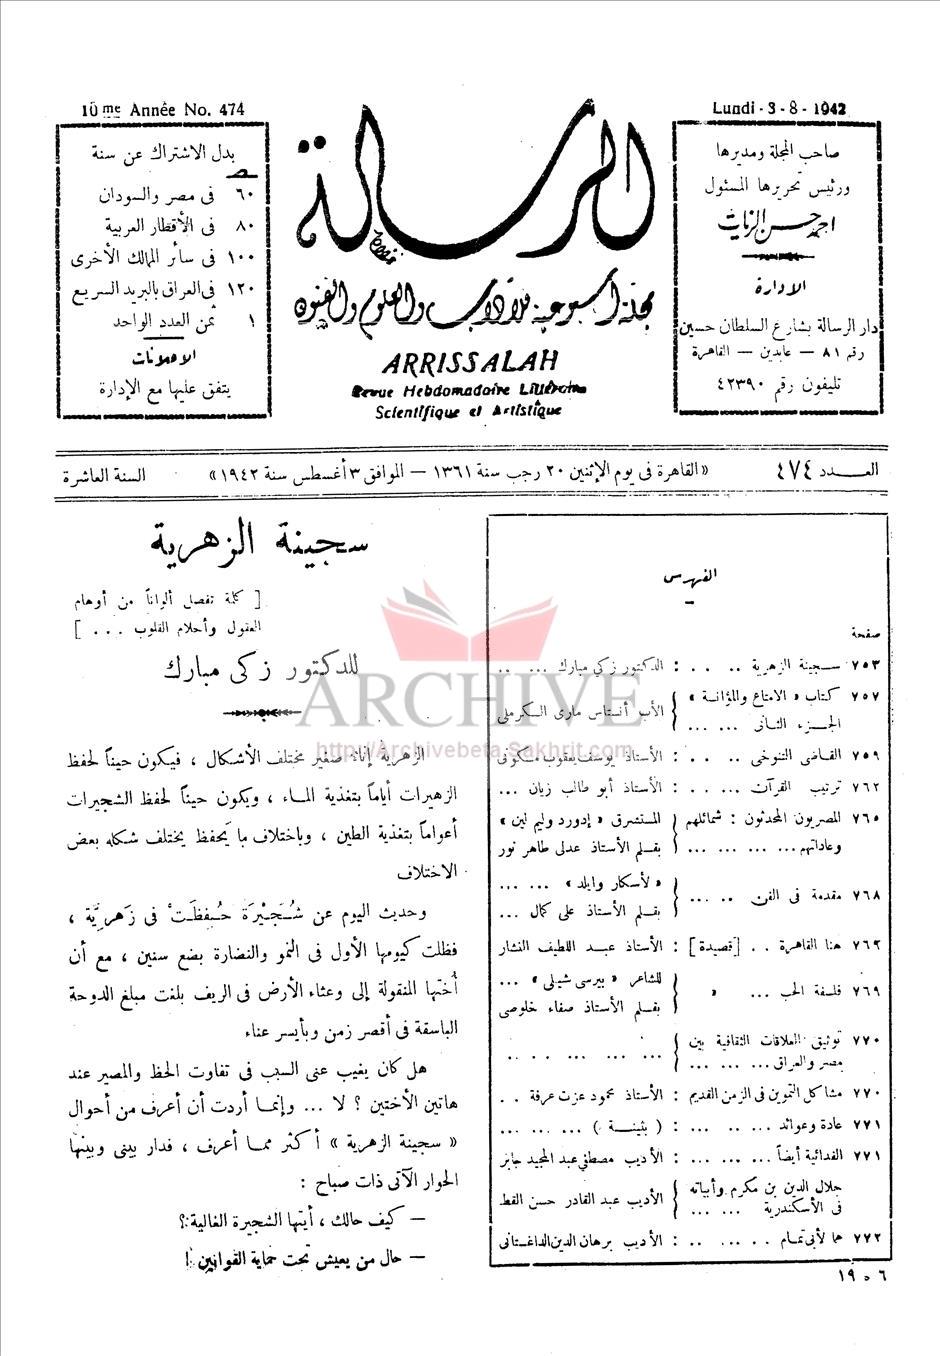 10me Année No. 474
Lundi - 3 - 8 - 1942
صاحب المجلة ومديرها
ورئيس تحريرها المسئول
احمد حسن الزيات
الإدارة
دار الرسالة بشارع السلطان حسين
رقم ٨١ — عابدين — القاهرة
تليفون رقم ٤٢٣٩٠
الرسالة
مجلة أسبوعية للآداب والعلوم والفنون
ARRISSALAH
Revue Hebdomadaire Littéraire
Scientifique et Artistique
بدل الاشتراك عن سنة
٦٠ فى مصر والسودان
٨٠ فى الأقطار العربية
١٠٠ فى سائر الممالك الأخرى
١٢٠ فى العراق بالبريد السريع
١ ثمن العدد الواحد
الاعلانات
يتفق عليها مع الإدارة
العـــدد ٤٧٤
« القاهرة فى يوم الإثنين ٢٠ رجب سنة ١٣٦١ — الموافق ٣ أغسطس سنة ١٩٤٢ »
السنة العاشرة
الفهرس
صفحة
٧٥٣ سـجينة الزهرية .. .. . : الدكتور زكي مبارك ... .. ..
٧٥٧ كتاب « الامتاع والمؤانسة » الجـزء الثـانى ... ... الأب أنستاس مارى الـكرملى
٧٥٩ القـاضى التنوخى .. .. . : الأسـتاذ يوسـف يعقوب مسكونى
٧٦٢ ترتيب القرآن ... .. . : الأستاذ أبو طالب زيان ...
٧٦٥ المصريون المحدثون : شمائلهم وعاداتهم ... ... ... ... المستشرق « إدورد وليم لين » بقـلم الأستاذ عدلى طاهر نور
٧٦٨ مقدمة فى الفن .. ... .. « لأسكار وايلد » ... ... بقـلم الأستاذ على كمال ...
٧٦٩ هنا القاهرة . . [قصيدة] : الأستاذ عبـد اللطيف النشار
٧٦٩ فلسفة الحب ... .. » للشاعر « بيرسى شيلى » ... بقـلم الأستاذ صفاء خلوصى
٧٧٠ توثيق العلاقات الثقافية بين مصر والعراق ... ... ... ... ... ... .. . .
٧٧٠ مشاكل التموين فى الزمن القديم : الأستاذ محمود عزت عرفة . .
٧٧١ عادة وعوائد ... .. ... . : ( بثينــة ) ... ... ...
٧٧١ الفدائية أيضاً ... ... ... : الأديب مصطفى عبد المجيد جابر
جلال الدين بن مكرم وأبياته فى الأسكندرية ... ... الأديب عبد القادر حسن القط
٧٧٢ هما لأبى تمـام . . ... .. : الأديب برهان الدين الداغستانى
سجينة الزهرية
[ كلمة تفصل ألواناً من أوهام
العقول وأحلام القلوب ... ]
للدكتور زكى مبارك
الزهرية إناء صغير مختلف الأشكال ، فيكون حيناً لحفظ
الزهيرات أياماً بتغذية المـاء ، ويكون حيناً لحفظ الشجيرات
أعواماً بتغذية الطين ، وباختلاف ما يَحفظ يختلف شكله بعض
الاختلاف
وحديث اليوم عن شُـجَيْرَة حُـفِظَتْ فى زَهرِيَّة ،
فظلت كيومها الأول فى النمو والنضارة بضع سنين ، مع أن
أُختها المنقولة إلى وعثاء الأرض فى الريف بلغت مبلغ الدوحة
الباسقة فى أقصر زمن وبأيسر عناء
هل كان يغيب عنى السبب فى تفاوت الحظ والمصير عند
هاتين الأختين ؟ لا ... وإنمـا أردت أن أعرف من أحوال
« سجينة الزهرية » أكثر ممـا أعرف ، فدار بينى وبينها
الحوار الآتى ذات صباح :
— كيف حالك ، أيتها الشجيرة الغالية ؟
— حال من يعيش تحت حماية القوانين !
١٩٥٦
ARCHIVE
http://Archivebeta.Sakhrit.com